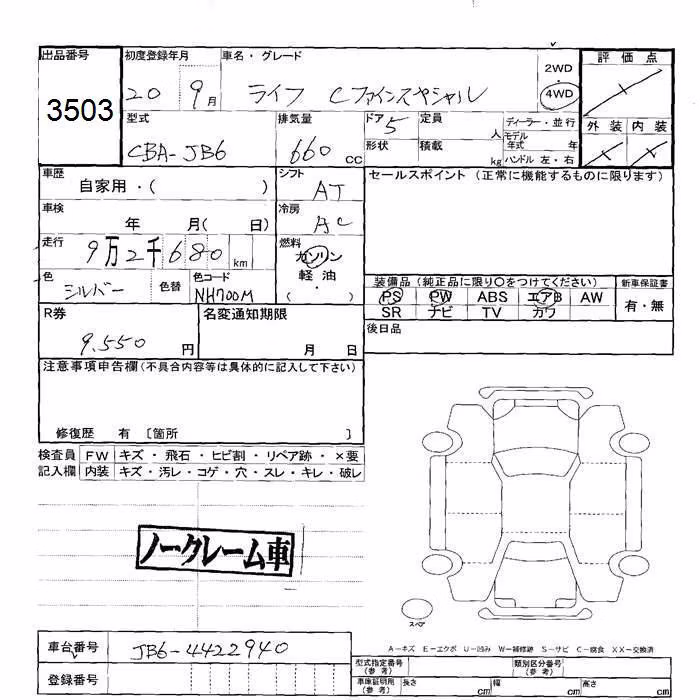 出品番号 初度登録年月 車名・グレード 評価点
3503 20 9月 ライフ Cファインスペシャル 2WD 4WD
型式 排気量 ドア 定員 ディーラー・並行 外装 内装
CBA-JB6 660cc 5 人 モデル年式 年
形状 積載 kg ハンドル 左・右
車歴 シフト セールスポイント (正常に機能するものに限ります)
自家用・( ) AT
車検 冷房
年 月( 日) AC
走行 燃料
9万2千680km ガソリン
軽・油
色 色替 色コード ( )
シルバー NH700M
装備品 (純正品に限り〇をつけてください) 新車保証書
PS PW ABS エアB AW 有・無
SR ナビ TV カワ
R券 名変通知期限 後日品
9.550円 月 日
注意事項申告欄(不具合内容等は具体的に記入して下さい)
修復歴 有 〔箇所 〕
検査員 FW キズ・飛石・ヒビ割・リペア跡・×要
記入欄 内装 キズ・汚レ・コゲ・穴・スレ・キレ・破レ
ノークレーム車
スペア
A-キズ E-エクボ U-凹み W-補修跡 S-サビ C-腐食 XX-交換済
車台番号 JB6-4422940
登録番号
型式指定番号(参考) 類別区分番号(参考)
車庫証明用(参考) 長さ cm 幅 cm 高さ cm